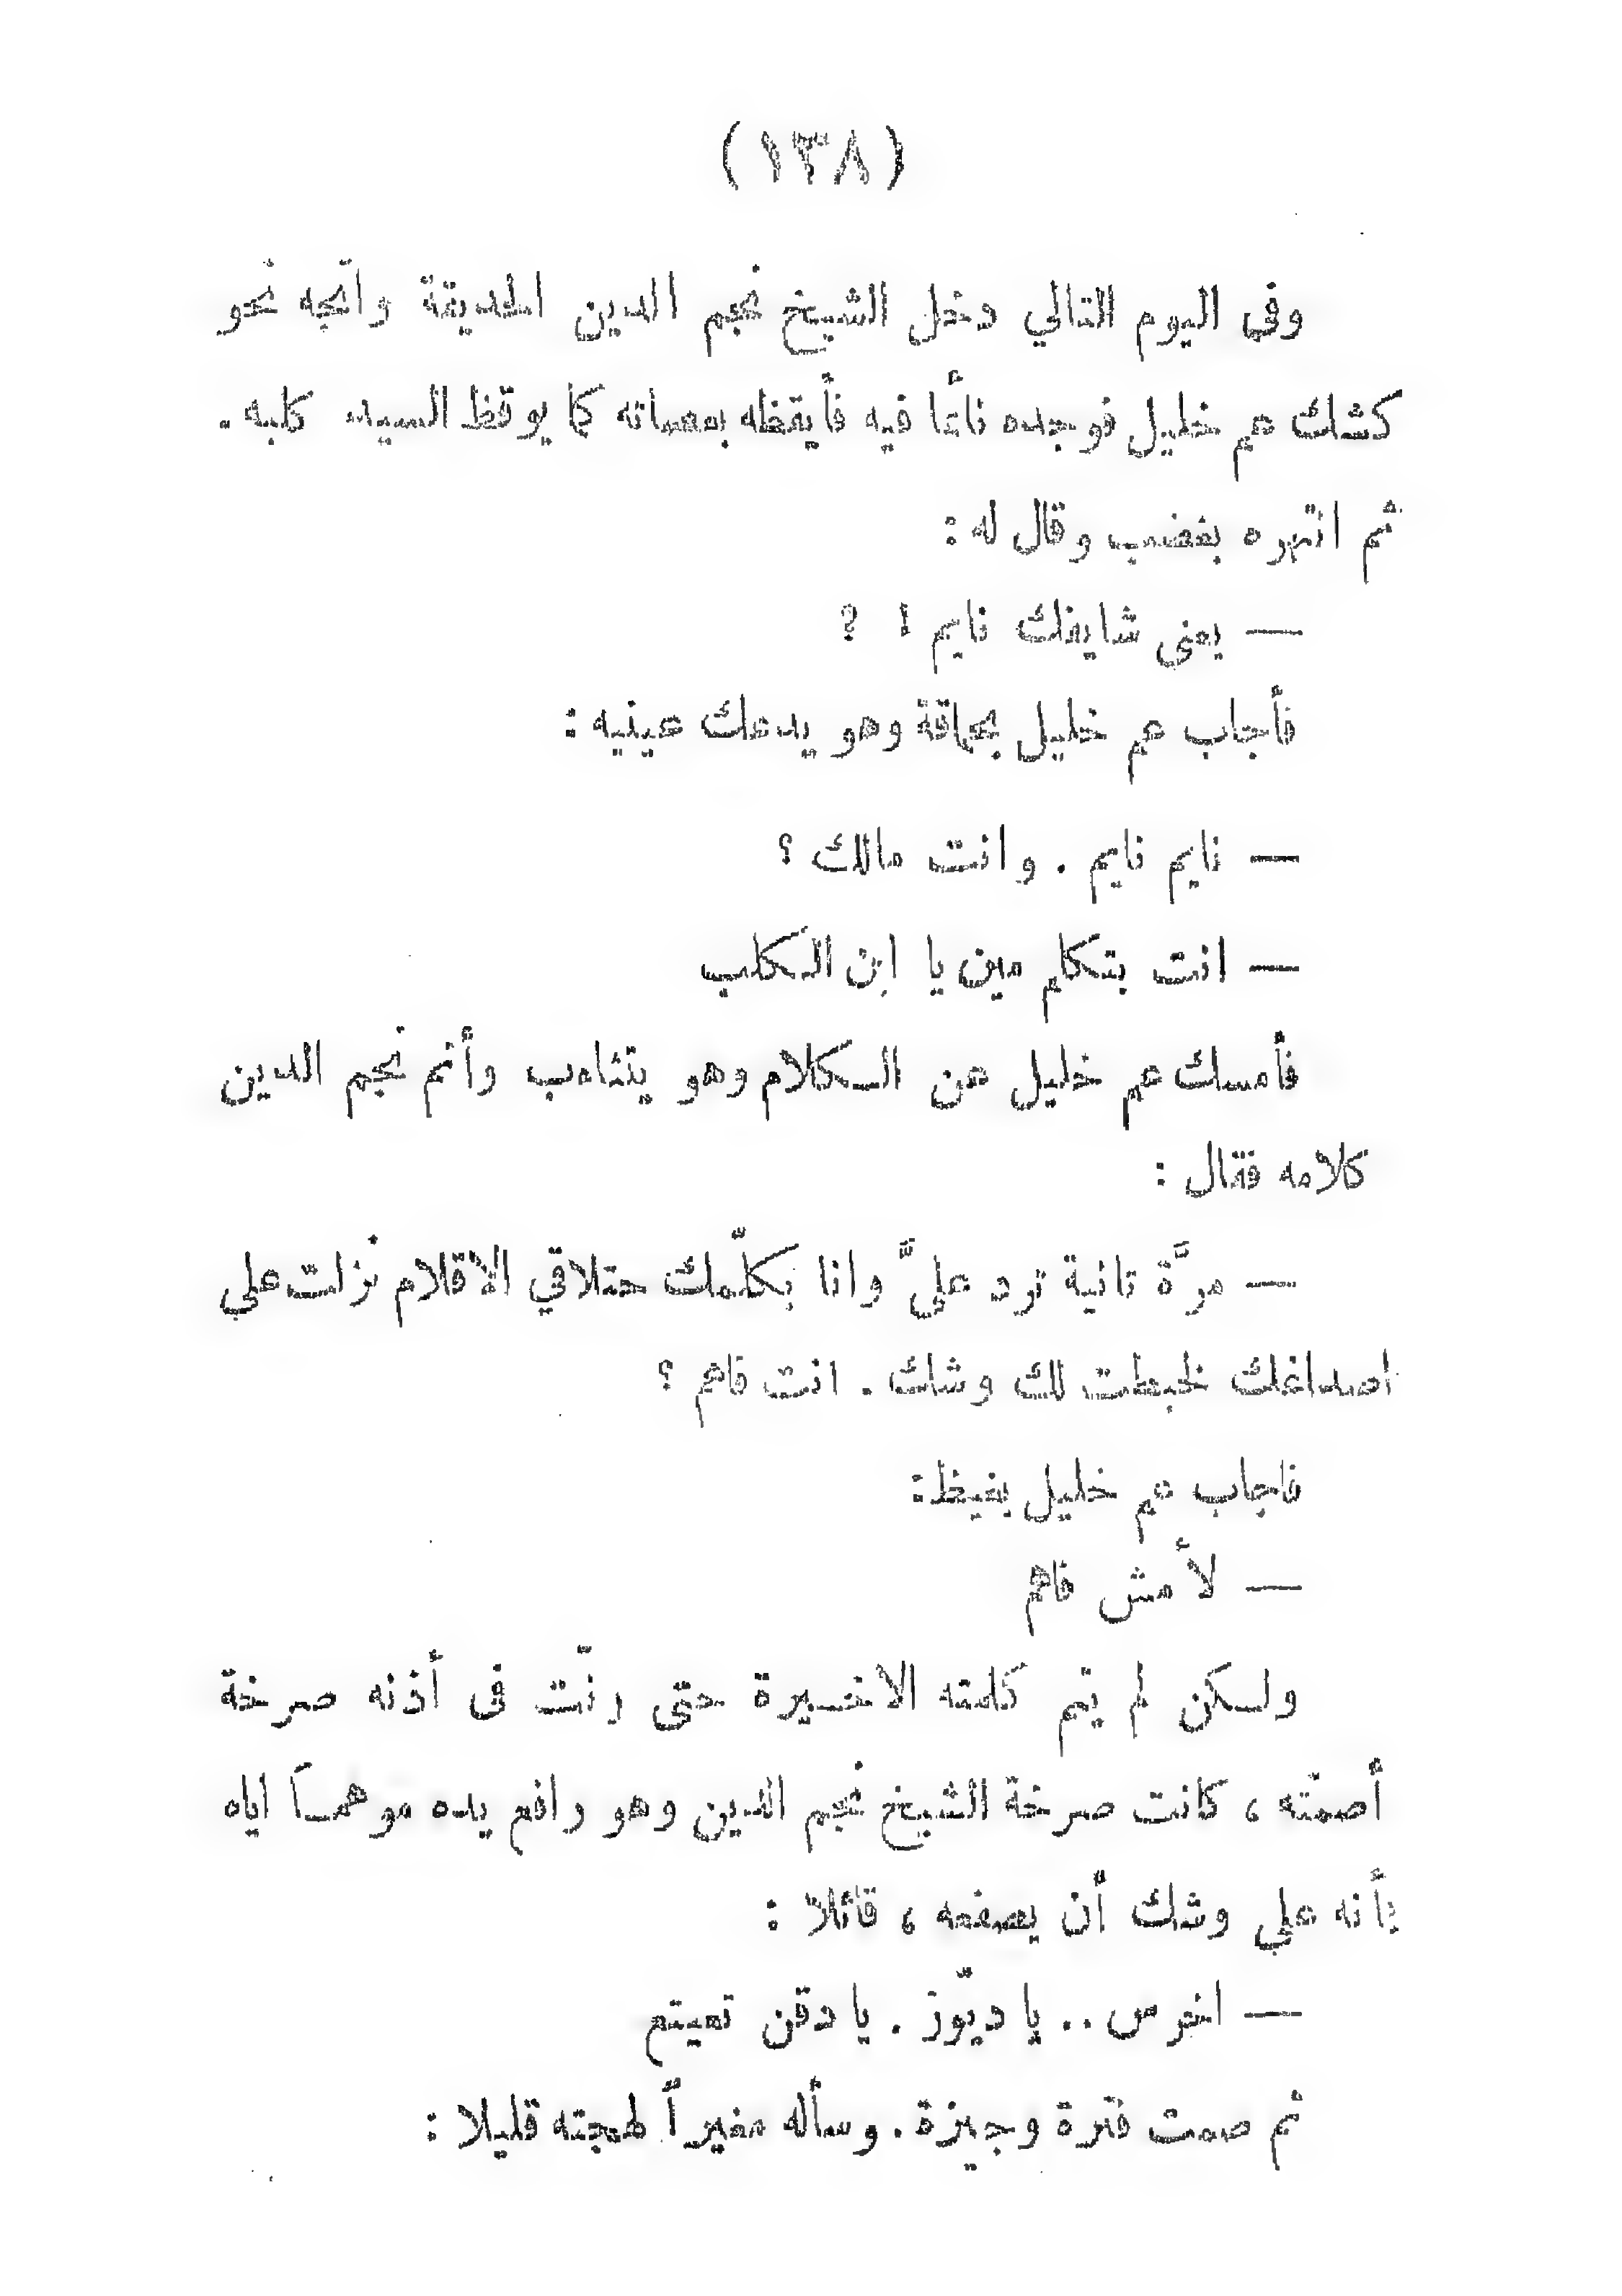 (١٣٨)
وفى اليوم التالي دخل الشيخ نجم الدين الحديقة واتّجه نحو
كشك عم خليل فوجده نائماً فيه فأيقظه بعصاته كما يوقظ السيد كلبه .
ثم انتهره بغضب وقال له :
— يعنى شايفك نايم ! ؟
فأجاب عم خليل بحماقة وهو يدعك عينيه :
— نايم نايم . وانت مالك ؟
— انت بتكلم مين يا ابن الكلب
فأمسك عم خليل عن الكلام وهو يتثاءب وأتم نجم الدين
كلامه فقال :
— مرَّة تانية ترد عليَّ وانا بكلّمك حتلاقي الاقلام نزلت على
اصداغك لخبطت لك وشك . انت فاهم ؟
فاجاب عم خليل بغيظ :
— لأ مش فاهم
ولكن لم يتم كلمته الاخيرة حتى رنّت فى أذنه صرخة
أصمّته ، كانت صرخة الشيخ نجم الدين وهو رافع يده موهماً اياه
بأنه على وشك أن يصفعه ، قائلا :
— اخرس .. يا ديّوز . يا دقن تعيتع
ثم صمت فترة وجيزة . وسأله مغيراً لهجته قليلا :